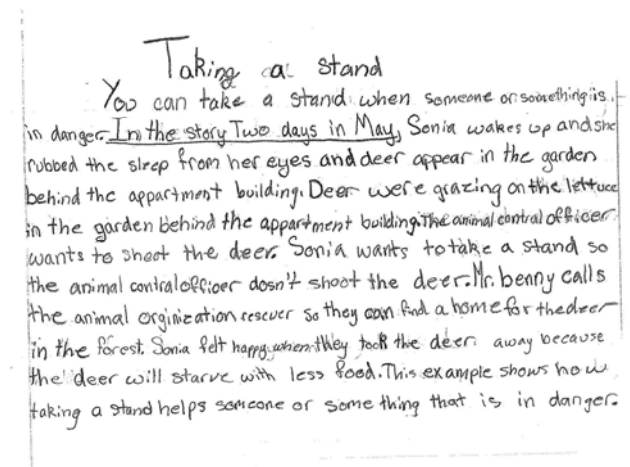 Taking a stand
You can take a stand when someone or something is
in danger. In the story Two days in May, Sonia wakes up and she
rubbed the sleep from her eyes and deer appear in the garden
behind the appartment building. Deer were grazing on the lettuce
in the garden behind the appartment building. The animal contral officer
wants to shoot the deer. Sonia wants to take a stand so
the animal contral officer dosn't shoot the deer. Mr. benny calls
the animal orginization rescuer so they can find a home for the deer
in the forest. Sonia felt happy when they took the deer away because
the deer will starve with less food. This example shows how
taking a stand helps someone or some thing that is in danger.